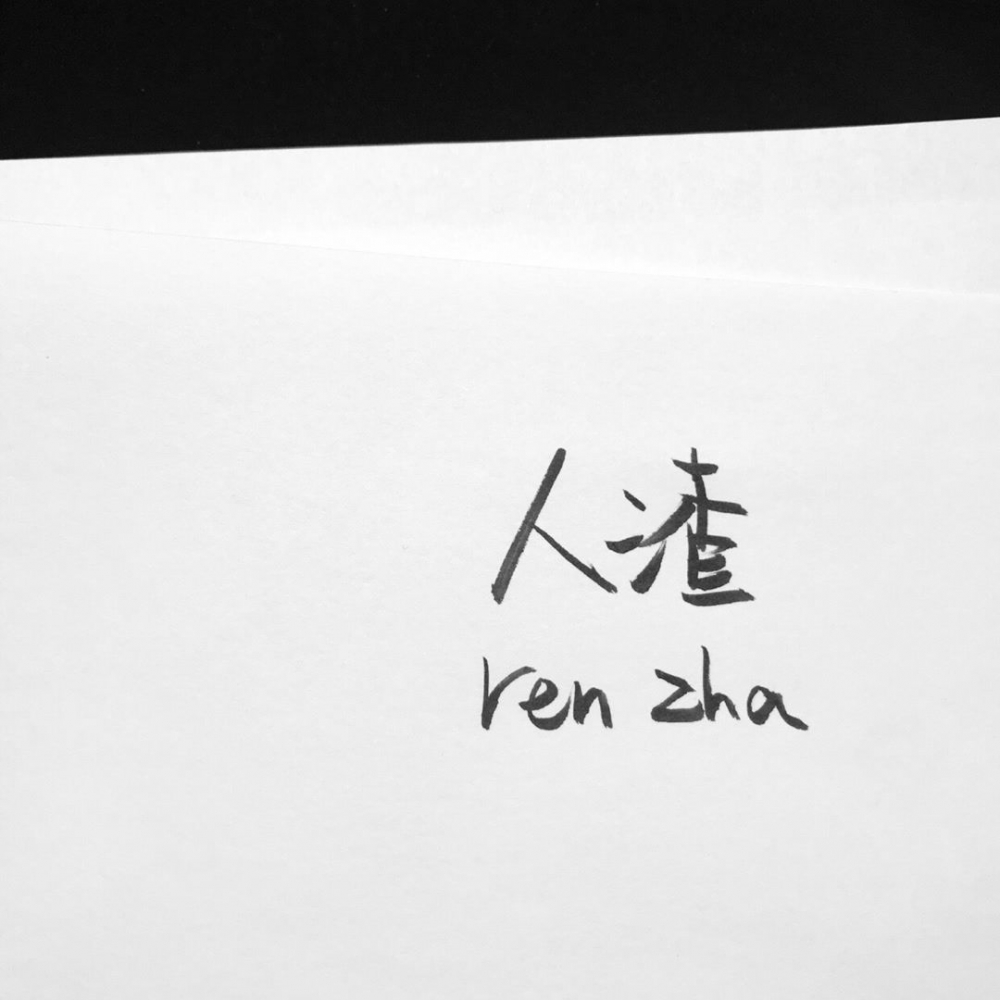 人渣
ren zha